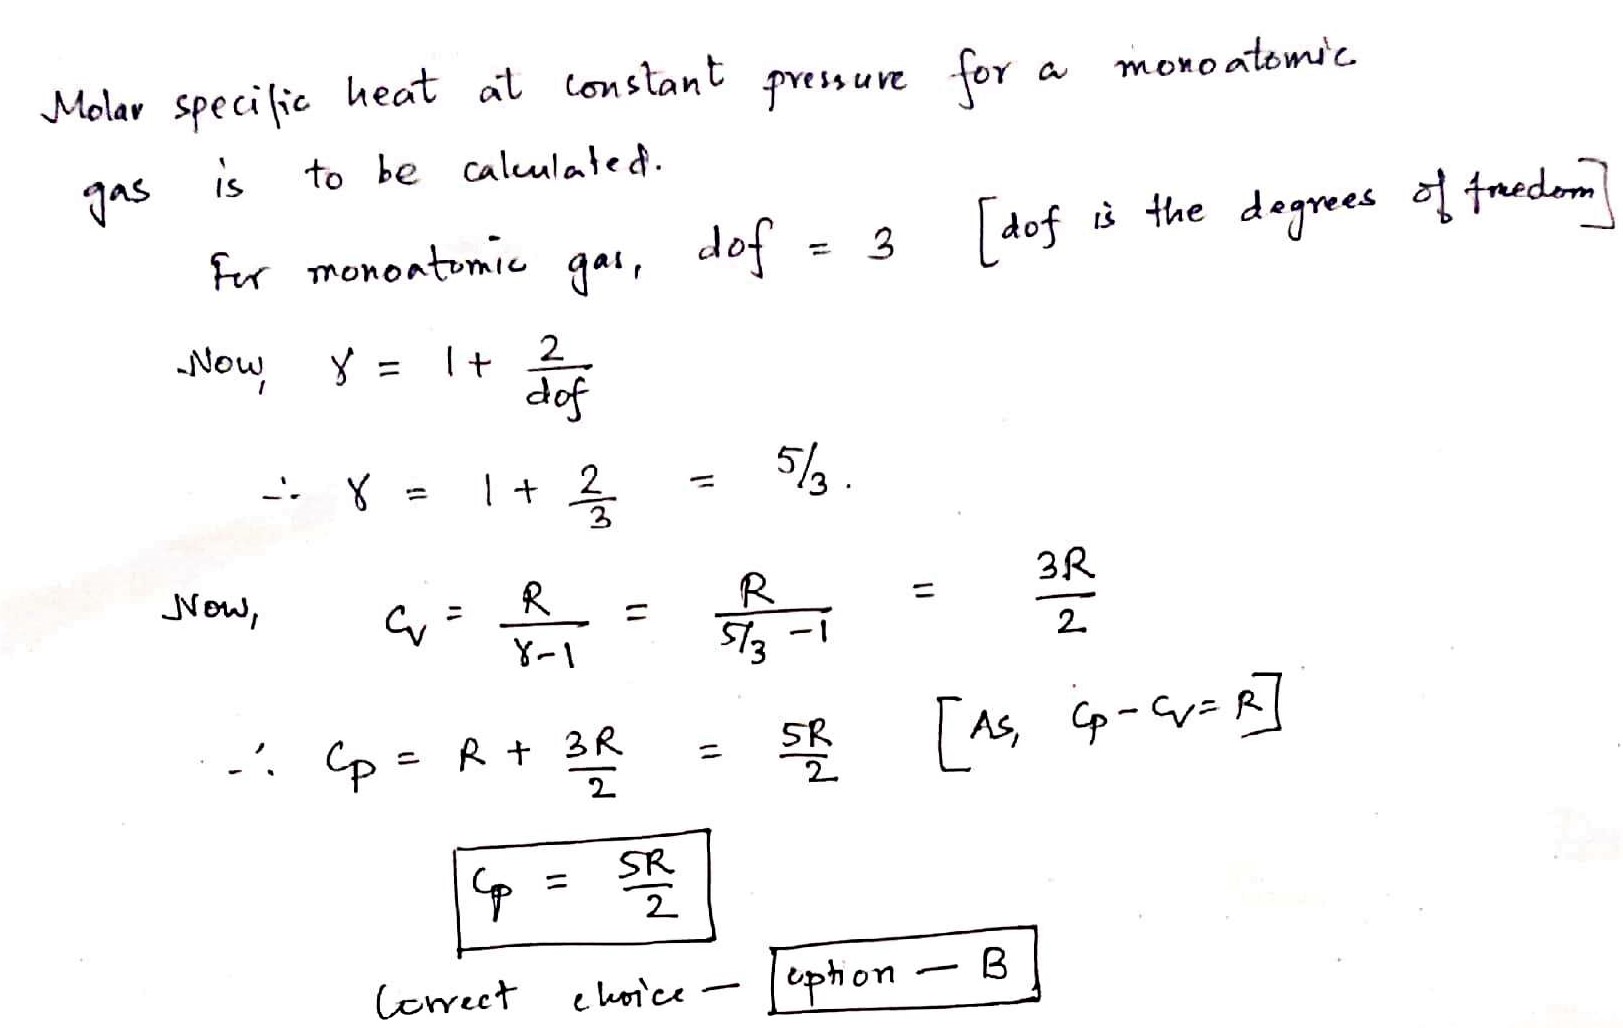 Molar specific heat at constant pressure for a monoatomic
gas is to be calculated.
For monoatomic gas, dof = 3 [dof is the degrees of freedom]
Now, γ = 1 + 2/dof
∴ γ = 1 + 2/3 = 5/3.
Now, Cv = R/(γ-1) = R/(5/3 - 1) = 3R/2
∴ Cp = R + 3R/2 = 5R/2 [As, Cp - Cv = R]
Cp = 5R/2
Correct choice - option - B